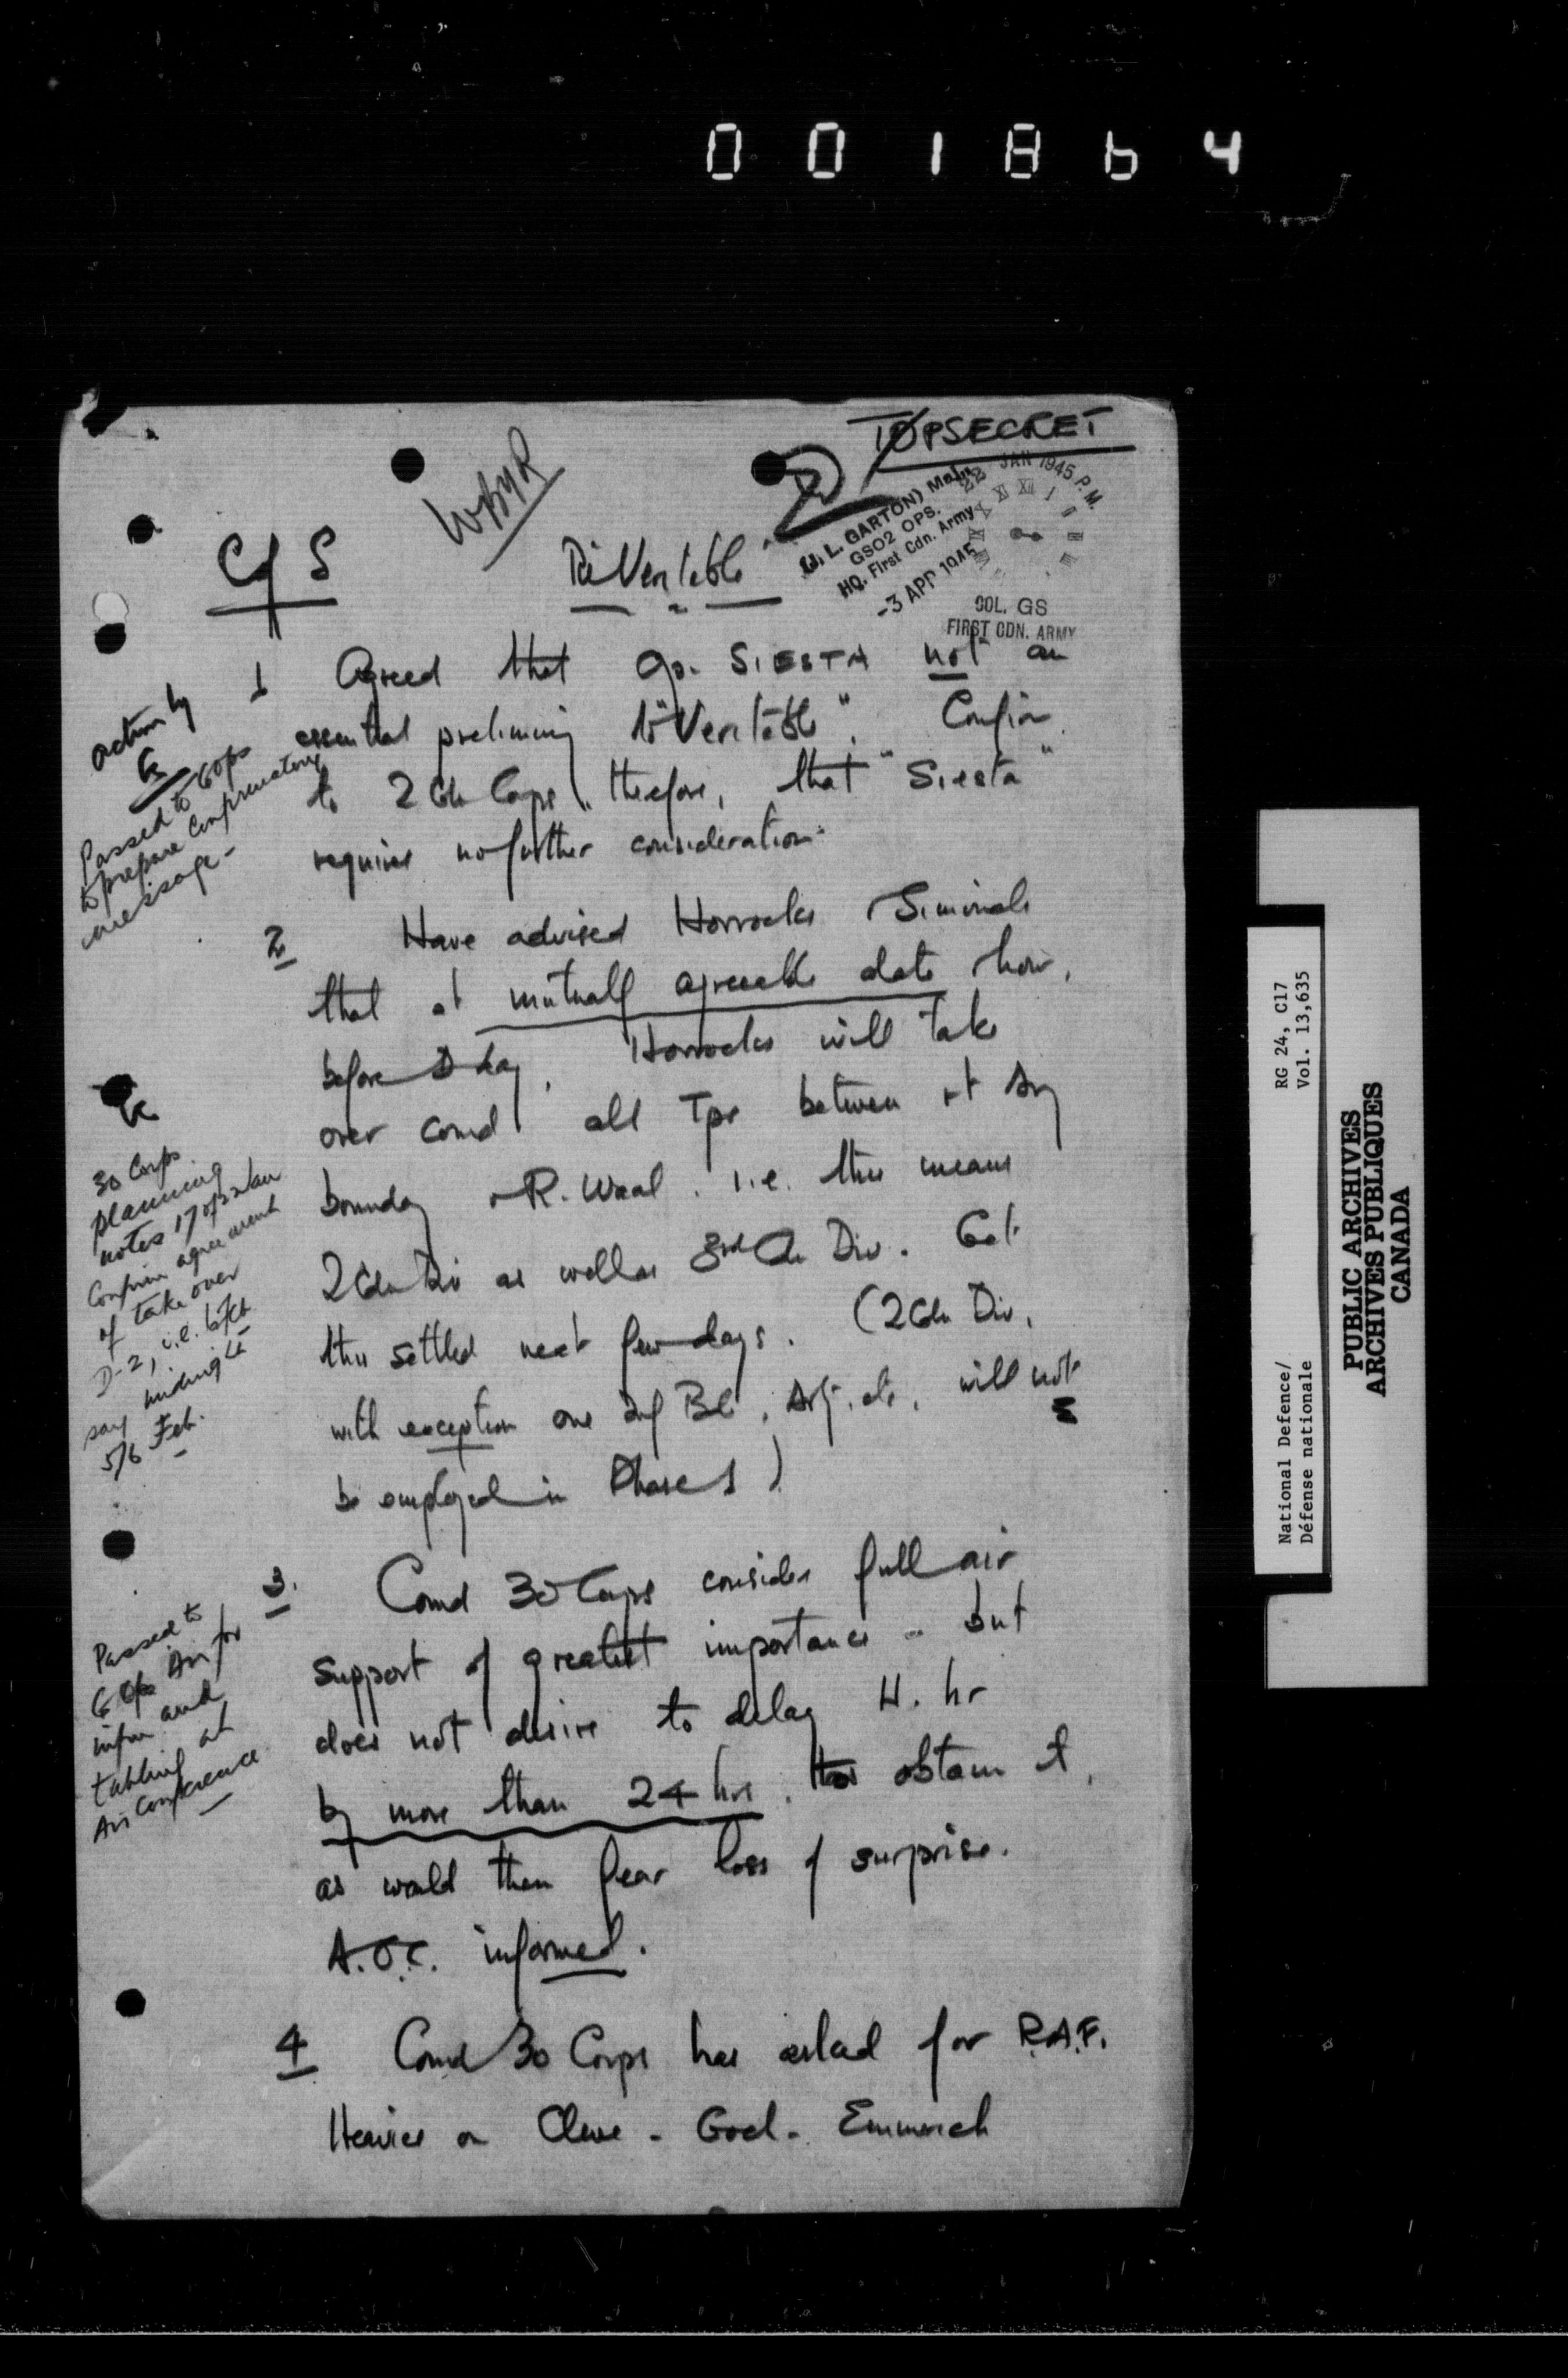 001864
TOP SECRET
22 JAN 1945 P.M.
(W. L. GARTON) Major
GSO2 OPS.
HQ. First Cdn. Army
-3 APR 1945
COL. GS
FIRST CDN. ARMY
C of S
Re "Veritable"
1 Agreed that Op. SIESTA not an
essential preliminary to "Veritable". Confirm
to 2 Cdn Corps, therefore, that "Siesta"
requires no further consideration.
action by
G
Passed to G Ops
to prepare confirmatory
message -
2 Have advised Horrocks & Simonds
that at mutually agreeable date & hour,
before D day, Horrocks will take
over comd all Tps between rt Army
boundary & R. Waal. i.e. this means
2 Cdn Div as well as 3rd Cdn Div. Get
this settled next few days. (2 Cdn Div,
with exception one Inf Bde, Arty, etc, will not
be employed in Phase 1)
G
30 Corps
planning
notes 17 of 22 Jan
Confirm agreement
of take over
D-2, i.e. 6 Feb
say midnight
5/6 Feb.
3. Comd 30 Corps considers full air
support of greatest importance - but
does not desire to delay H. hr
by more than 24 hrs. to obtain it,
as would then fear loss of surprise.
A.O.C. informed.
Passed to
G Ops Air for
infm and
tabling at
Air Conference
4 Comd 30 Corps has asked for R.A.F.
Heavies on Cleve - Goch - Emmerich
RG 24, C17
Vol. 13,635
National Defence/
Défense nationale
PUBLIC ARCHIVES
ARCHIVES PUBLIQUES
CANADA